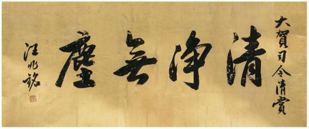 大賀司令清賞
清淨無塵
汪兆銘